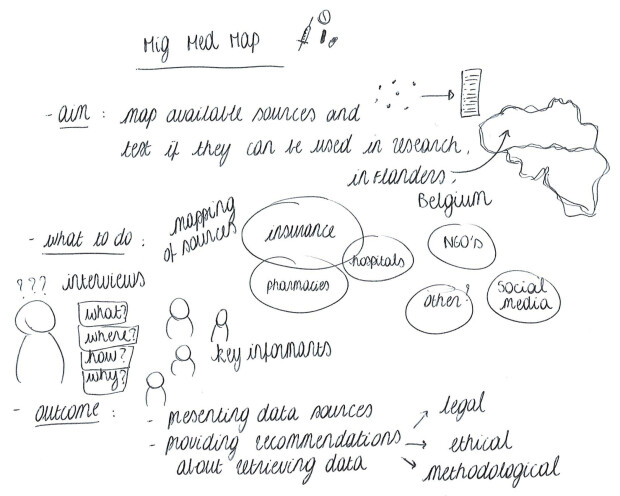 Mig Med Map
- aim : map available sources and
test if they can be used in research,
in Flanders,
Belgium
- what to do :
mapping
of sources
insurance
hospitals
pharmacies
NGO's
other?
social
media
??? interviews
what?
where?
how?
why?
key informants
- outcome :
- presenting data sources
- providing recommendations
about retrieving data
legal
ethical
methodological